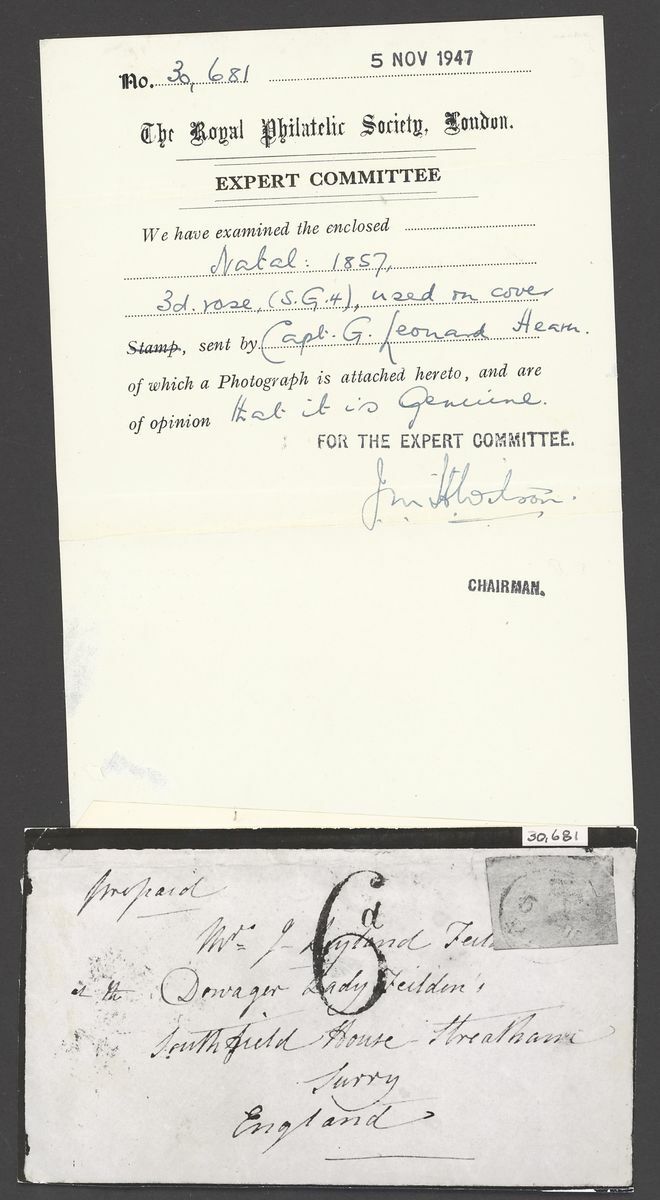 No. 30,681 5 NOV 1947
The Royal Philatelic Society, London.
EXPERT COMMITTEE
We have examined the enclosed
Natal: 1857,
3d. rose, (S.G.4), used on cover
Stamp, sent by Capt. G. Leonard Hearn.
of which a Photograph is attached hereto, and are
of opinion that it is Genuine.
FOR THE EXPERT COMMITTEE.
Wilson.
CHAIRMAN.
30,681
prepaid
6d
Mrs J. Leyland
Dowager Lady Feilden's
Southfield House Streatham
Surry
England